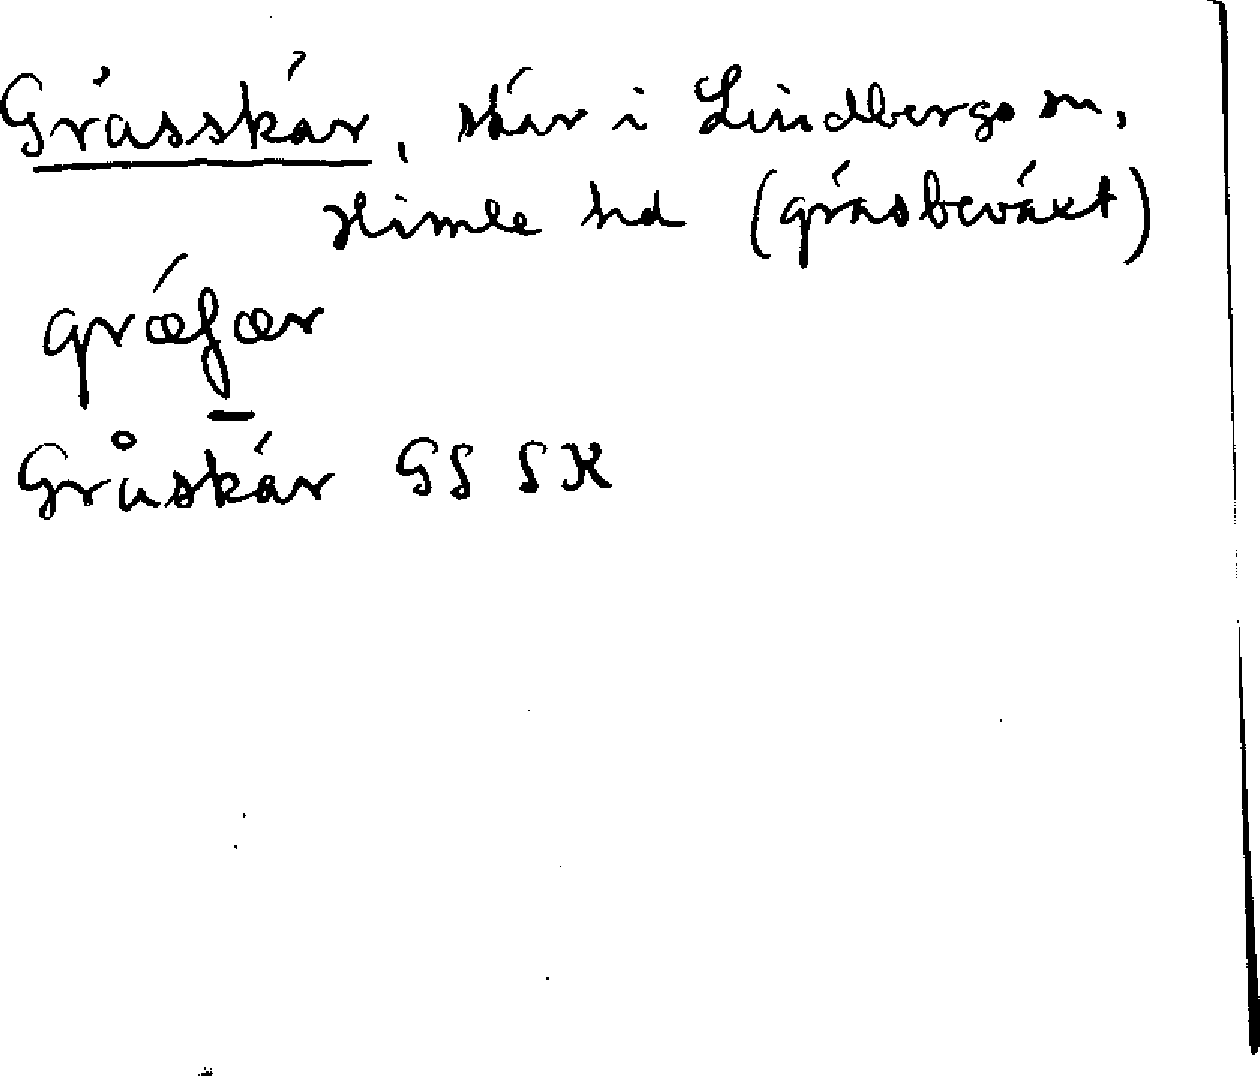 Grässkär, skär i Lindbergs sn,
Himle hd (gräsbeväxt)
græʃær
Gråskär GS SK